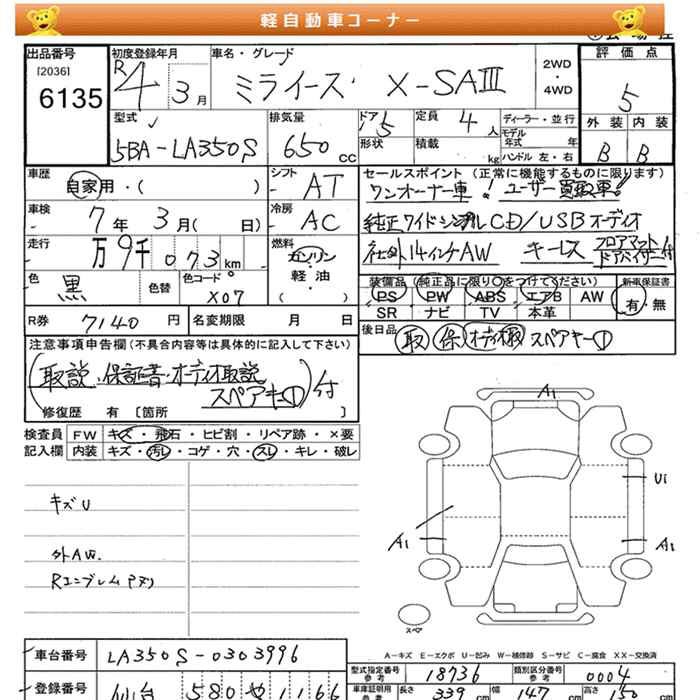 軽自動車コーナー
出品番号 初度登録年月 車名・グレード 評価点
[2036] 6135 R4年 3月 ミライース X-SAⅢ 2WD・4WD 5
型式 排気量 ドア 5 定員 4人 ディーラー・並行 外装 内装
5BA-LA350S 650cc 形状 積載 kg モデル年式 年 ハンドル 左・右 B B
車歴 自家用・( ) シフト AT
セールスポイント(正常に機能するものに限ります)
ワンオーナー車! ユーザー買取車!
車検 7年 3月( 日) 冷房 AC
純正ワイドシングルCD/USBオーディオ
走行 万9千073km 燃料 ガソリン・軽・油・( )
社外14インチAW キーレス フロアマット ドアバイザー付
色 黒 色替 色コード X07
装備品(純正品に限り○をつけてください) 新車保証書
PS PW ABS エアB AW 有・無
SR ナビ TV 本革
R券 7140円 名変期限 月 日
後日品 取 保 オーディオ取 スペアキー①
注意事項申告欄(不具合内容等は具体的に記入して下さい)
(取説・保証書・オーディオ取説
スペアキー①)付
修復歴 有 [箇所 ]
検査員 FW キズ・飛石・ヒビ割・リペア跡・×要
記入欄 内装 キズ・汚レ・コゲ・穴・スレ・キレ・破レ
A1
キズU
U1
外AW.
A1 A1
Rエンブレム
スペア
A-キズ E-エクボ U-凹み W-補修跡 S-サビ C-腐食 XX-交換済
車台番号 LA350S-0303996
型式指定番号 参考 18736 類別区分番号 参考 0004
登録番号 仙台 580 1166
車庫証明用 参考 長さ 339cm 幅 147cm 高さ 150cm